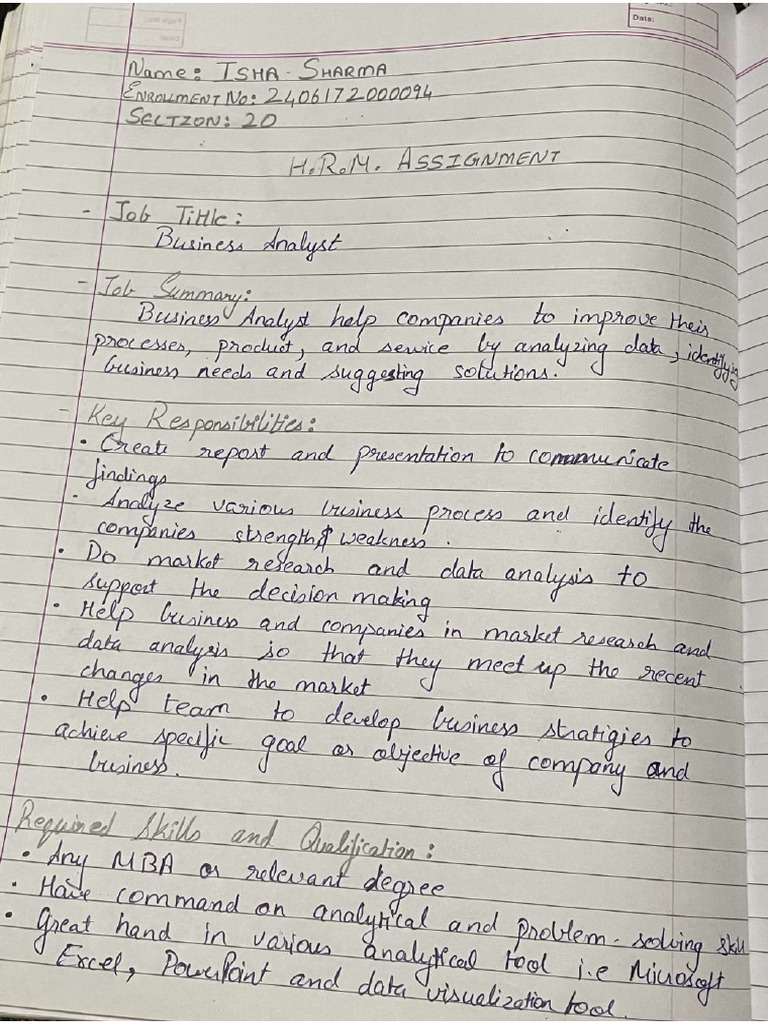 Date:
Name: ISHA SHARMA
ENROLLMENT NO: 2406172000094
SECTION: 20
H.R.M. ASSIGNMENT
- Job Title:
Business Analyst
- Job Summary:
Business Analyst help companies to improve their
processes, product, and service by analyzing data, identifying
business needs and suggesting solutions.
- Key Responsibilities:
• Create report and presentation to communicate
findings
• Analyze various business process and identify the
companies strength & weakness.
• Do market research and data analysis to
support the decision making
• Help business and companies in market research and
data analysis so that they meet up the recent
changes in the market
• Help team to develop business stratigies to
achieve specific goal or objective of company and
business.
Required Skills and Qualification:
• Any MBA or relevant degree
• Have command on analytical and problem-solving skill
• Great hand in various analytical tool i.e Microsoft
Excel, PowerPoint and data visualization tool.